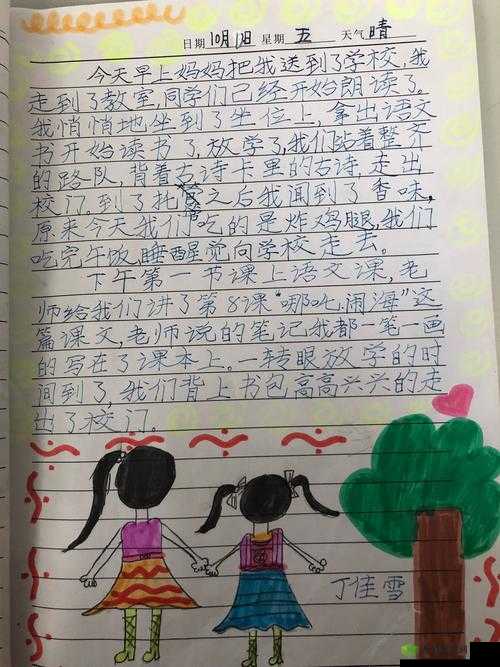 日期 10月18日 星期 五 天气 晴
今天早上妈妈把我送到了学校,我
走到了教室,同学们已经开始朗读了。
我悄悄地坐到了坐位上,拿出语文
书开始读书了,放学了,我们跕着整齐
的路队,背着古诗卡里的古诗,走出
校门。到了托管之后我闻到了香味,
原来今天我们吃的是炸鸡腿,我们
吃完午饭,睡醒觉向学校走去。
下午第一节课上语文课,老
师给我们讲了第8课“哪吒闹海”这
篇课文,老师说的笔记我都一笔一画
的写在了课本上。一转眼放学的时
间到了,我们背上书包高高兴兴的走
出了校门。
丁佳雪